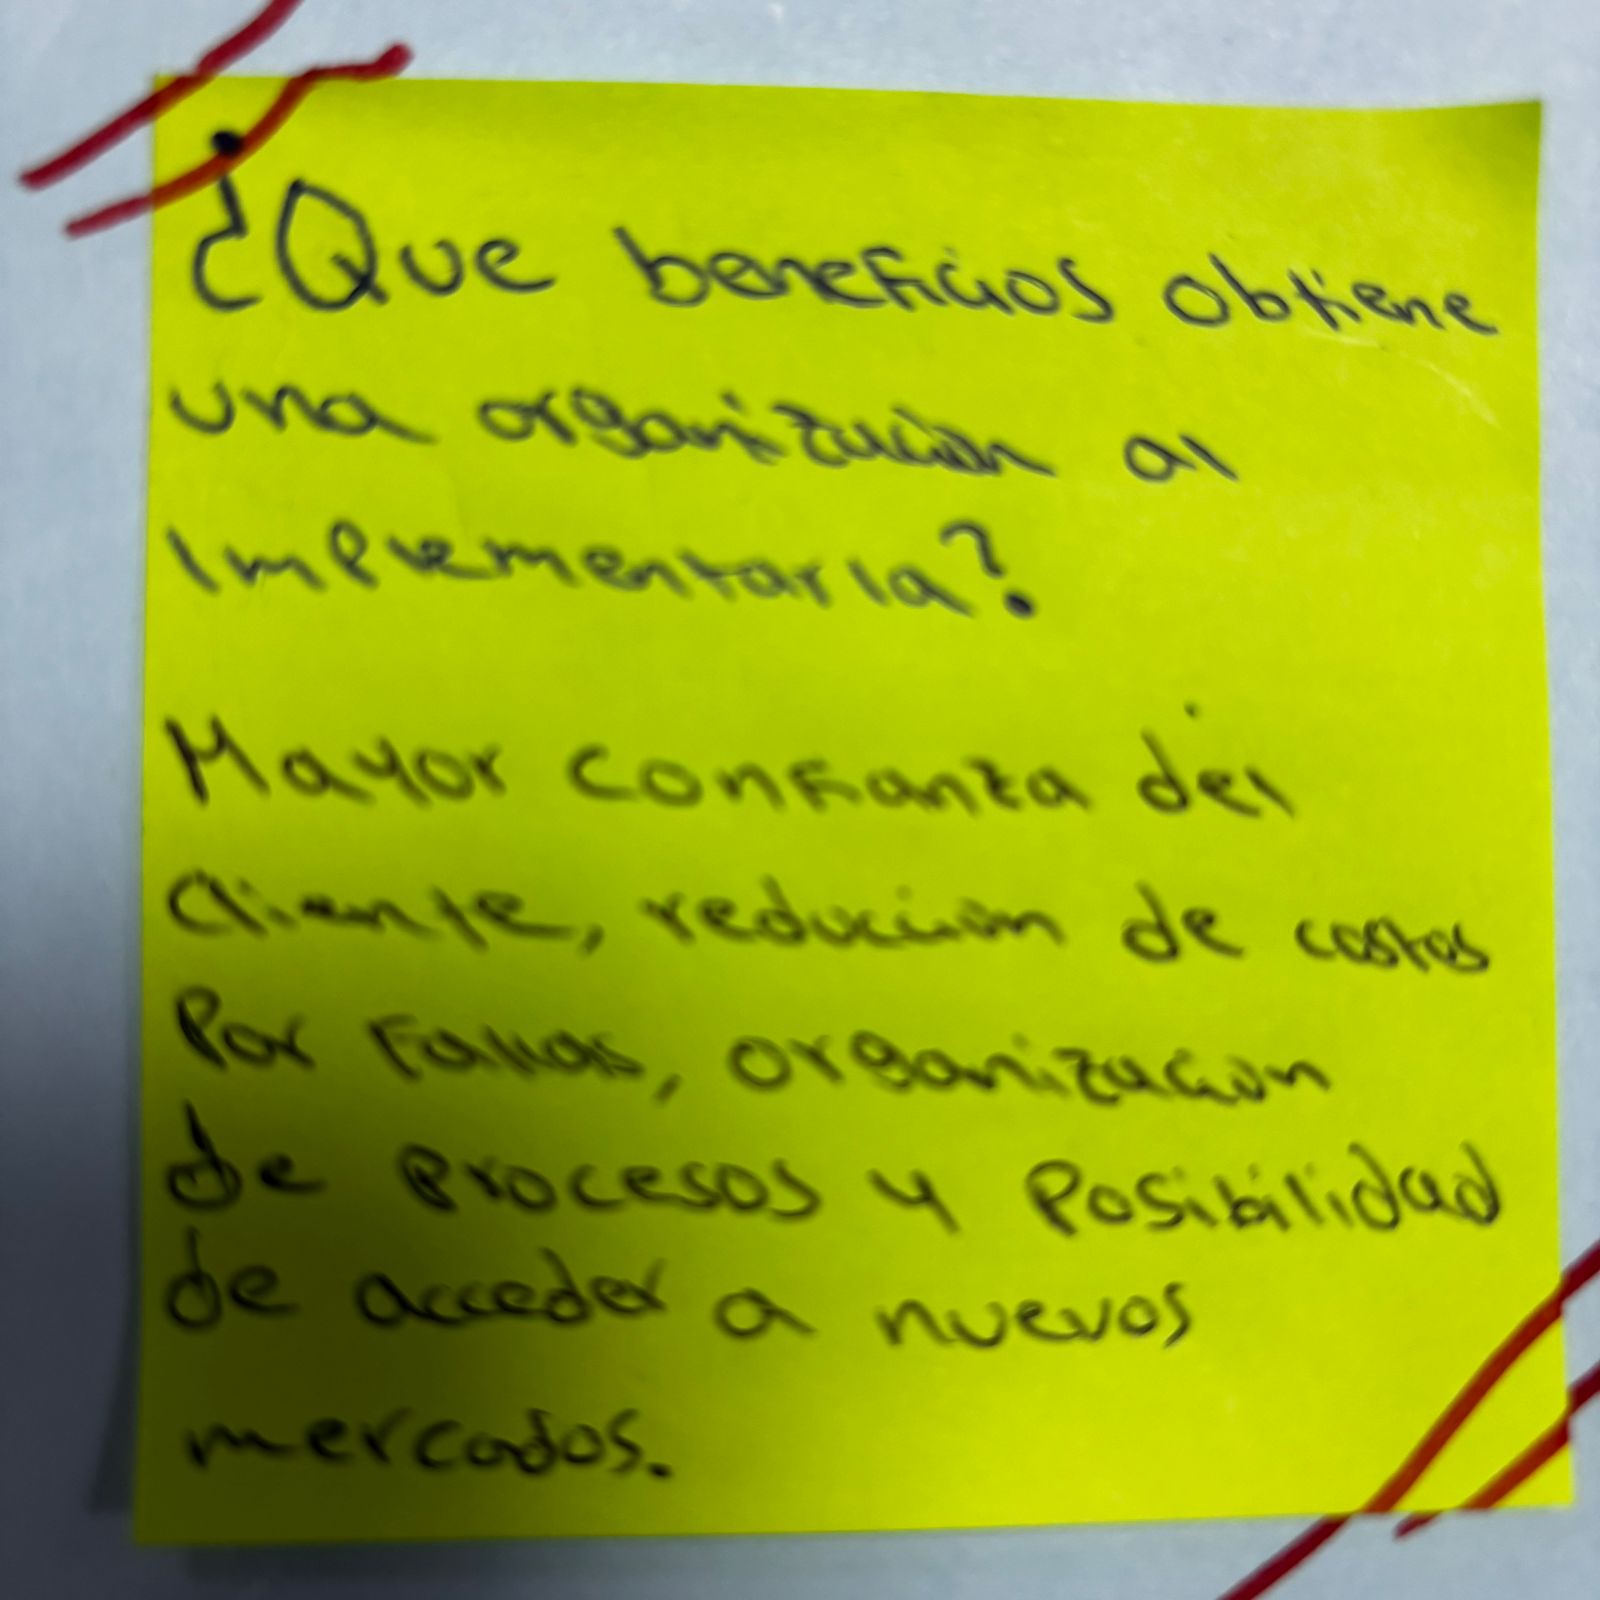 ¿Que beneficios obtiene
una organización al
Implementarla?
Mayor confianza del
Cliente, reducción de costos
Por Fallas, organización
de Procesos y Posibilidad
de acceder a nuevos
mercados.